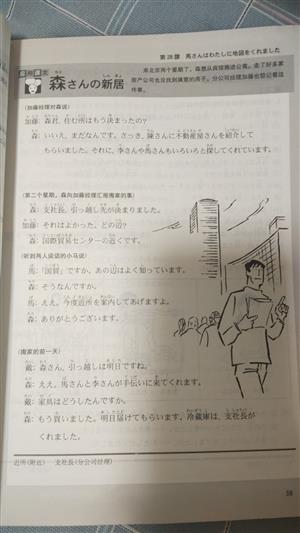 第28課 馬さんはわたしに地図をくれました
应用课文
森さんの新居
来北京两个星期了，森想从宾馆搬进公寓。走了好多家
房产公司也没找到满意的房子。分公司经理加藤也惦记着这
件事。
(加藤经理对森说)
加藤：森君，住む所はもう決まったの?
森：いいえ，まだなんです。さっき，陳さんに不動産屋さんを紹介して
もらいました。それに，李さんや馬さんもいろいろと探してくれています。
(第二个星期，森向加藤经理汇报搬家的事)
森：支社長，引っ越し先が決まりました。
加藤：それはよかった。どの辺?
森：国際貿易センターの近くです。
(听到两人谈话的小马说)
馬：「国貿」ですか。あの辺はよく知っています。
森：そうなんですか。
馬：ええ。今度近所を案内してあげますよ。
森：ありがとうございます。
(搬家的前一天)
戴：森さん，引っ越しは明日ですね。
森：ええ。馬さんと李さんが手伝いに来てくれます。
戴：家具はどうしたんですか。
森：もう買いました。明日届けてもらいます。冷蔵庫は，支社長が
くれました。
近所(附近) 支社長(分公司经理)
59